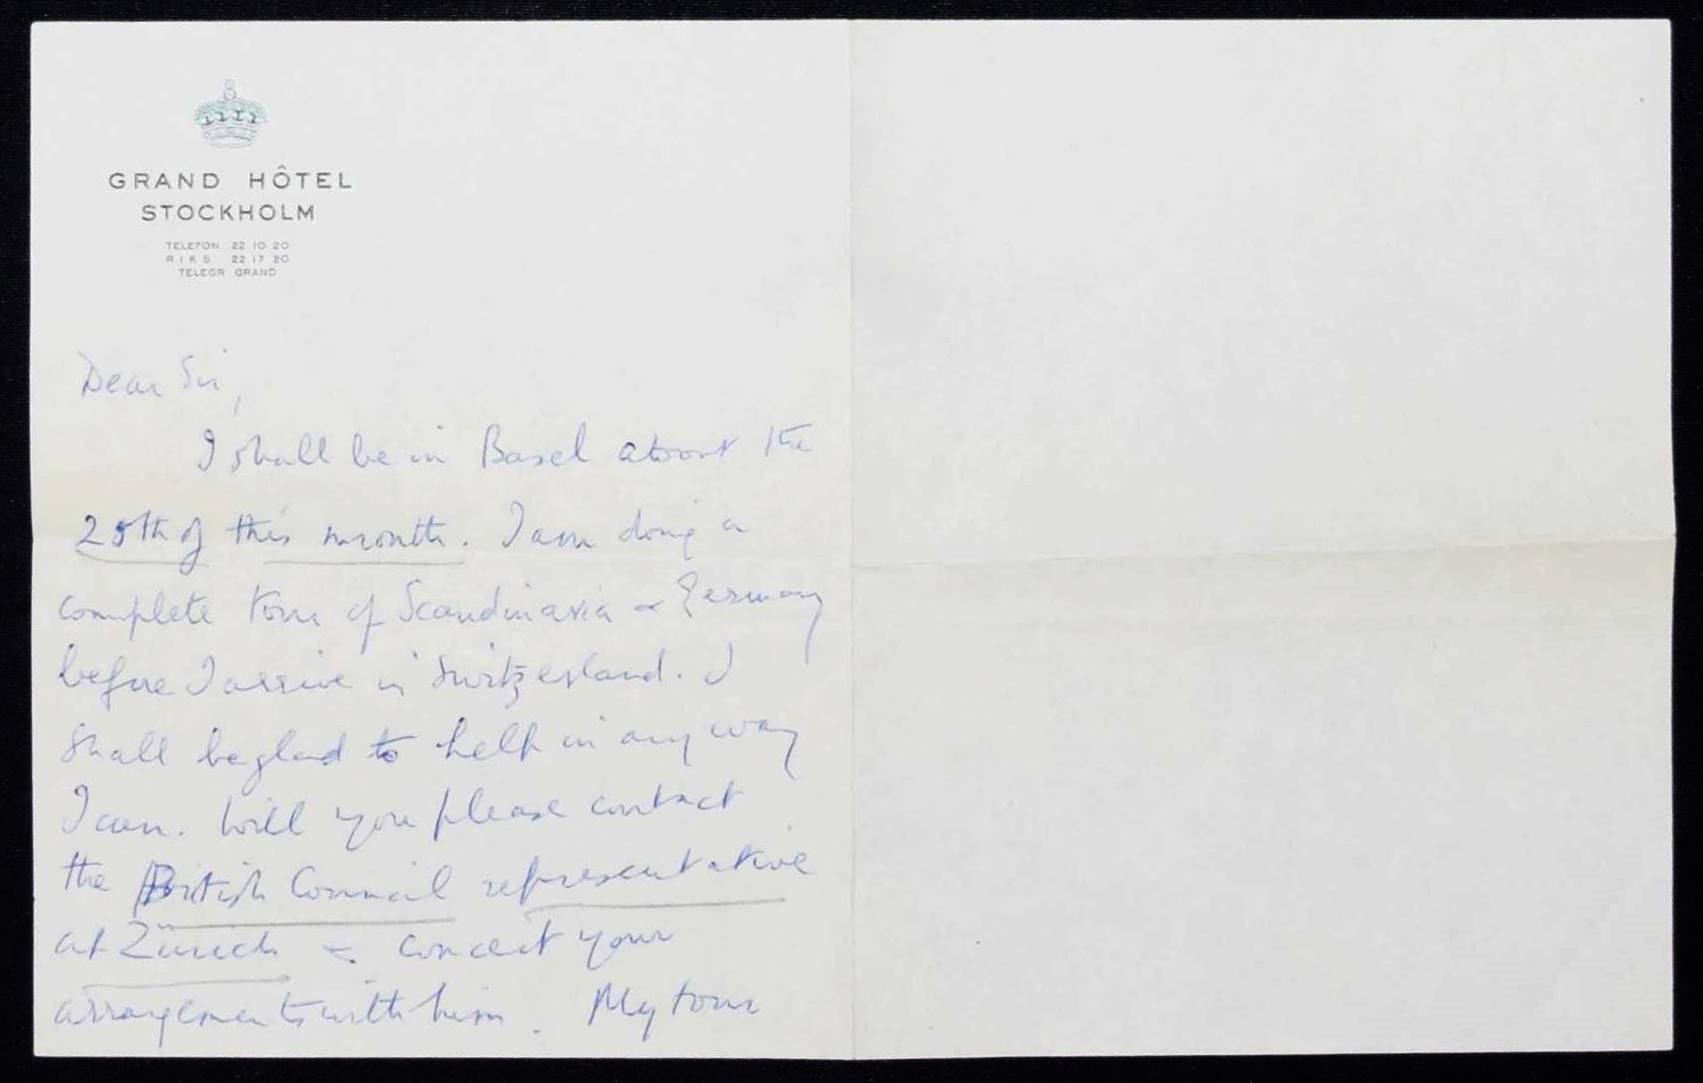 GRAND HÔTEL
STOCKHOLM
TELEFON 22 10 20
RIKS 22 17 20
TELEGR GRAND
Dear Sir,
I shall be in Basel about the
25th of this month. I am doing a
complete tour of Scandinavia & Germany
before I arrive in Switzerland. I
shall be glad to help in any way
I can. Will you please contact
the British Council representative
at Zürich & concert your
arrangements with him. My tour